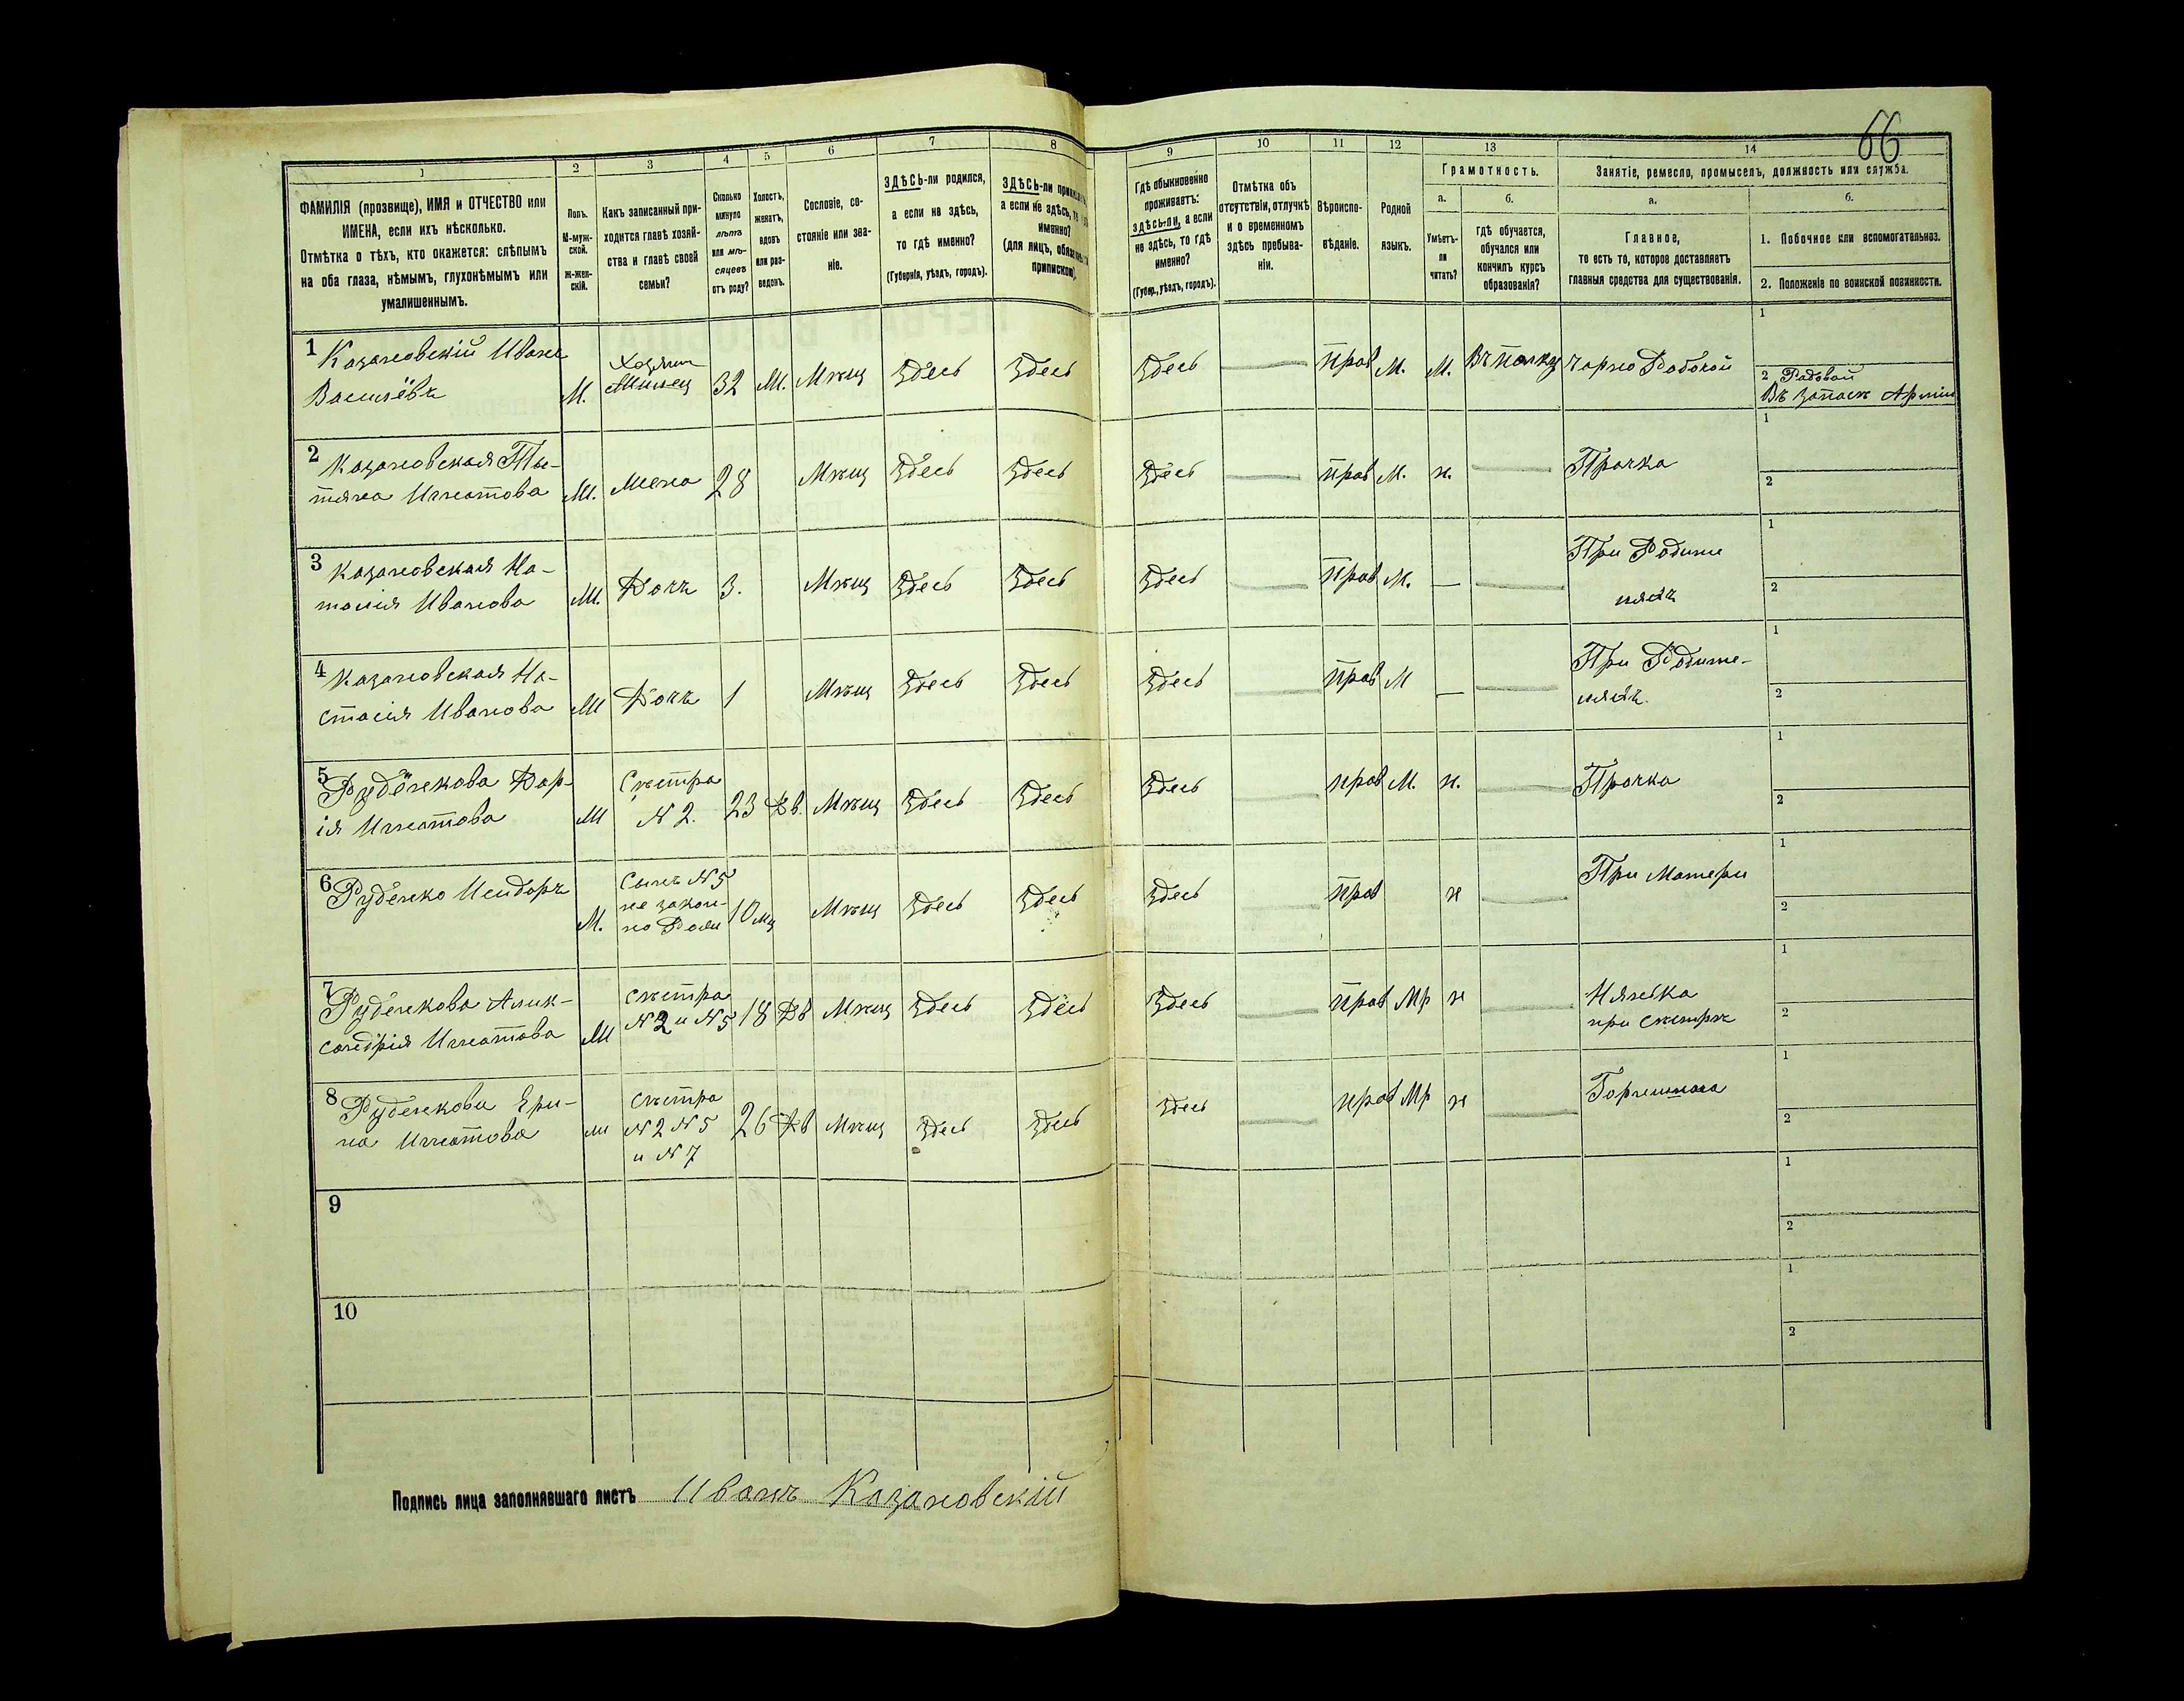 66
1 2 3 4 5 6 7 8 9 10 11 12 13 14
ФАМИЛІЯ (прозвище), ИМЯ и ОТЧЕСТВО или
ИМЕНА, если ихъ нѣсколько.
Отмѣтка о тѣхъ, кто окажется: слѣпымъ
на оба глаза, нѣмымъ, глухонѣмымъ или
умалишеннымъ.
Полъ.
М-муж-
ской.
Ж-жен-
скій.
Какъ записанный при-
ходится главѣ хозяй-
ства и главѣ своей
семьи?
Сколько
минуло
лѣтъ
или мѣ-
сяцевъ
отъ роду?
Холостъ,
женатъ,
вдовъ
или раз-
веденъ.
Сословіе, со-
стояніе или зва-
ніе.
ЗДѢСЬ-ли родился,
а если не здѣсь,
то гдѣ именно?
(Губернія, уѣздъ, городъ).
ЗДѢСЬ-ли
а если не здѣсь, то
именно?
(для лицъ,
припискою).
Гдѣ обыкновенно
проживаетъ:
здѣсь-ли, а если
не здѣсь, то гдѣ
именно?
(Губер., уѣздъ, городъ).
Отмѣтка объ
отсутствіи, отлучкѣ
и о временномъ
здѣсь пребыва-
ніи.
Вѣроиспо-
вѣданіе.
Родной
языкъ.
Грамотность.
а.
Умѣетъ-
ли
читать?
б.
гдѣ обучается,
обучался или
кончилъ курсъ
образованія?
Занятіе, ремесло, промыселъ, должность или служба.
а.
Главное,
то есть то, которое доставляетъ
главныя средства для существованія.
б.
1. Побочное или вспомогательное.
2. Положеніе по воинской повинности.
1 Казановскій Иванъ
Васильёвъ
М.
Хозяин
32 Ж. Мѣщ Здесь Здесь Здесь прав М. Чорно Рабочой
1
2 Радовой
Въ запасѣ Арміи
2 Казановская Ты-
тяна Игнатова
Ж. Жена 28 Мѣщ Здесь Здесь Здесь прав М. н. Прачка
1
2
3 Казановская На-
талія Иванова
Ж. Дочъ 3. Мѣщ Здесь Здесь Здесь прав М. — При Родите
ляхъ
1
2
4 Казановская На-
стасія Иванова
Ж Дочъ 1 Мѣщ Здесь Здесь Здесь прав М — При Родите-
ляхъ.
1
2
5 Рудёнкова Дар-
ія Игнатова
Ж Сѣстра
N 2.
23 Дв. Мѣщ Здесь Здесь Здесь прав М. н. Прачка
1
2
6 Руденко Исидоръ
М. Сынъ N 5
не закон-
но
10 мц Мѣщ Здесь Здесь Здесь прав н При Матери
1
2
7 Руденкова Алик-
сандрія Игнатова
Ж сѣстра
N 2 и N 5
18 Дв Мѣщ Здесь Здесь Здесь прав Мр н Нянька
при сѣстрѣ
1
2
8 Руденкова Ери-
на Игнатова
Ж сѣстра
N 2 N 5
и N 7
26 Дв Мѣщ Здесь Здесь Здесь прав Мр н Горнишная
1
2
9
1
2
10
1
2
Подпись лица заполнявшаго листъ Иванъ Казановскій